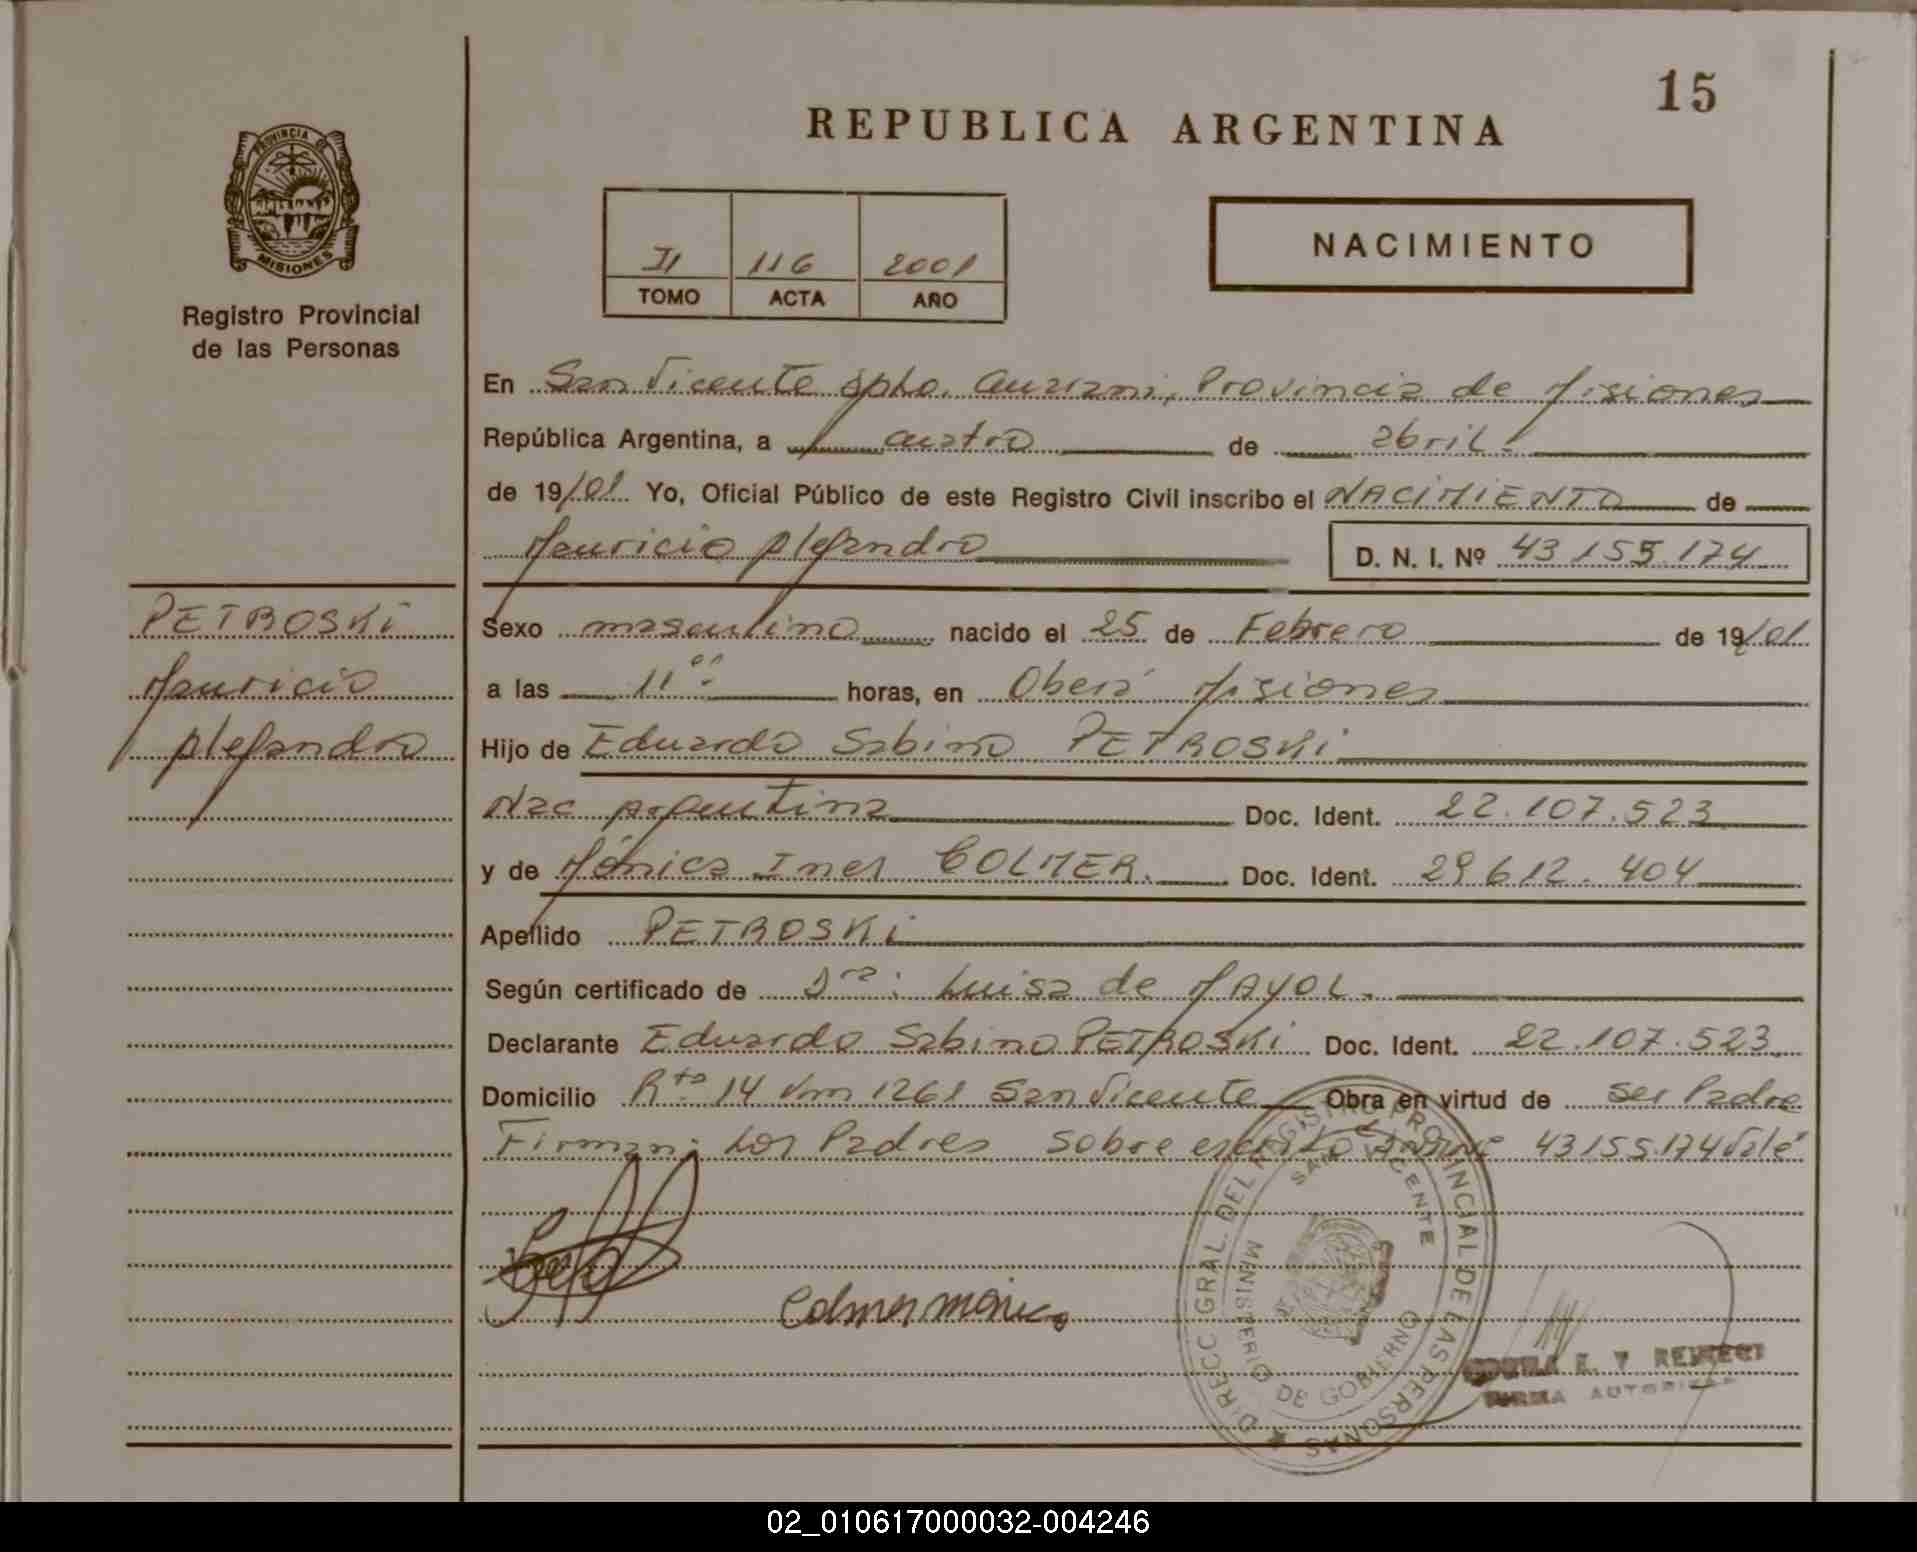 15
REPUBLICA ARGENTINA
PROVINCIA DE
MISIONES
Registro Provincial
de las Personas
II 116 2001
TOMO ACTA AÑO
NACIMIENTO
En San Vicente dpto. Guarani, Provincia de Misiones
República Argentina, a cuatro de abril.
de 19/01 Yo, Oficial Público de este Registro Civil inscribo el NACIMIENTO de
Mauricio Alejandro D. N. I. Nº 43 155.174
PETROSKi
Mauricio
Alejandro
Sexo masculino nacido el 25 de Febrero de 19/01
a las 11ºº horas, en Oberá Misiones
Hijo de Eduardo Sabino PETROSKi
Nac Argentina Doc. Ident. 22.107.523
y de Mónica Ines COLMER. Doc. Ident. 29 612. 404
Apellido PETROSKi
Según certificado de Dra: Luisa de MAYOL.
Declarante Eduardo Sabino PETROSKi Doc. Ident. 22.107.523
Domicilio Rta 14 Km 1261 San Vicente Obra en virtud de ser Padre
Firman: Los Padres sobre escrito 43155.174 Vale
Colmer Mónica
DIRECC GRAL. DEL REGISTRO PROVINCIAL DE LAS PERSONAS
SAN VICENTE
MINISTERIO DE GOBIERNO
FIRMA AUTORIZAD
02_010617000032-004246